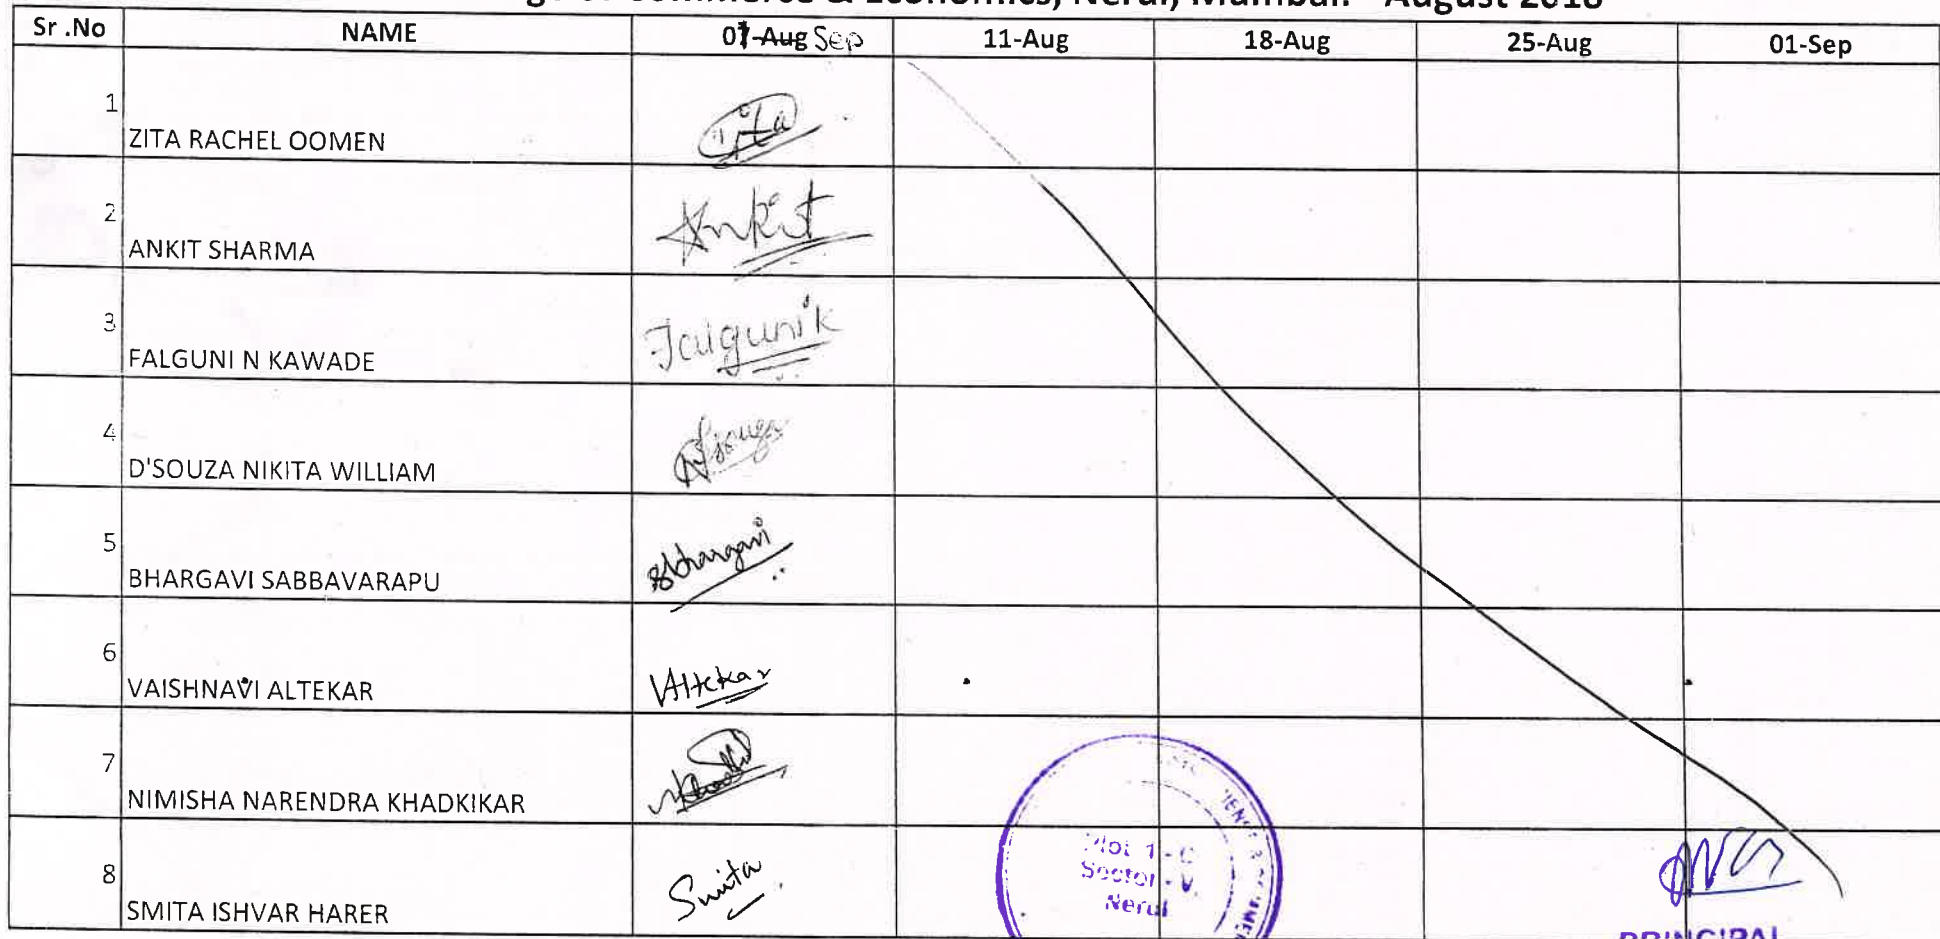 Commerce & Economics, Nerul, Mumbai. - August 2018
Sr .No NAME 01-Aug Sep 11-Aug 18-Aug 25-Aug 01-Sep
1 ZITA RACHEL OOMEN Zita
2 ANKIT SHARMA Ankit
3 FALGUNI N KAWADE Falguni k
4 D'SOUZA NIKITA WILLIAM
5 BHARGAVI SABBAVARAPU Bhargavi
6 VAISHNAVI ALTEKAR VAltekar
7 NIMISHA NARENDRA KHADKIKAR
8 SMITA ISHVAR HARER Smita
Plot 1 - C
Sector -
Nerul
PRINCIPAL